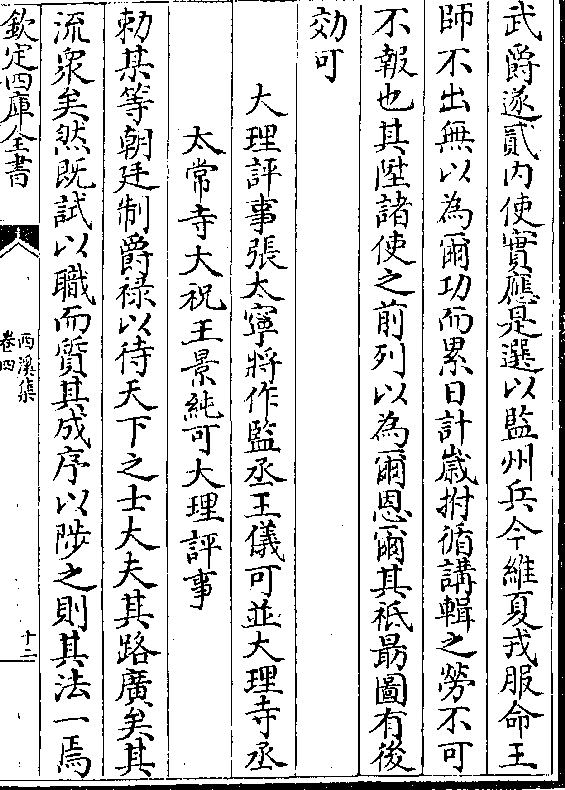 武爵遂貳内使實應是選以監州兵今維夏戎服命王
師不出無以為爾功而累日計歲拊循講輯之勞不可
不報也其陞諸使之前列以為爾恩爾其祗勗圖有後
效可
大理評事張太寧將作監丞王儀可並大理寺丞
太常寺大祝王景純可大理評事
勅某等朝廷制爵祿以待天下之士大夫其路廣矣其
流衆矣然既試以職而質其成序以陟之則其法一焉
欽定四庫全書
西溪集
卷四
十二